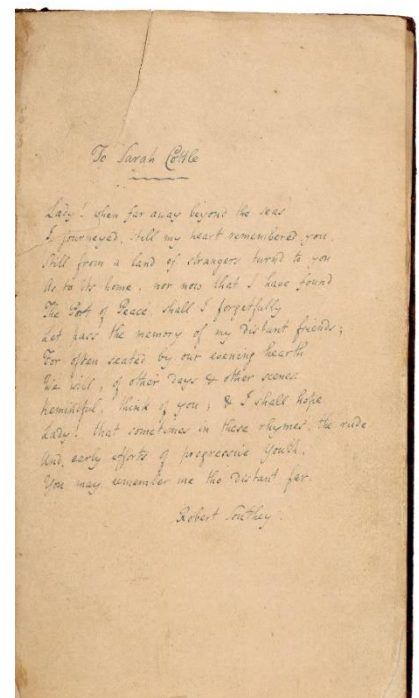 To Sarah Cottle
Lady! when far away beyond the seas
I journeyed, still my heart remembered you,
Still from a land of strangers turn'd to you
As to its home. nor now that I have found
The Port of Peace, shall I forgetfully
Let pass the memory of my distant friends;
For often seated by our evening hearth
We will, of other days & other scenes
Remindful, think of you; & I shall hope
Lady! that sometimes in these rhymes, the rude
And early efforts of progressive Youth,
You may remember me the distant far.
Robert Southey.